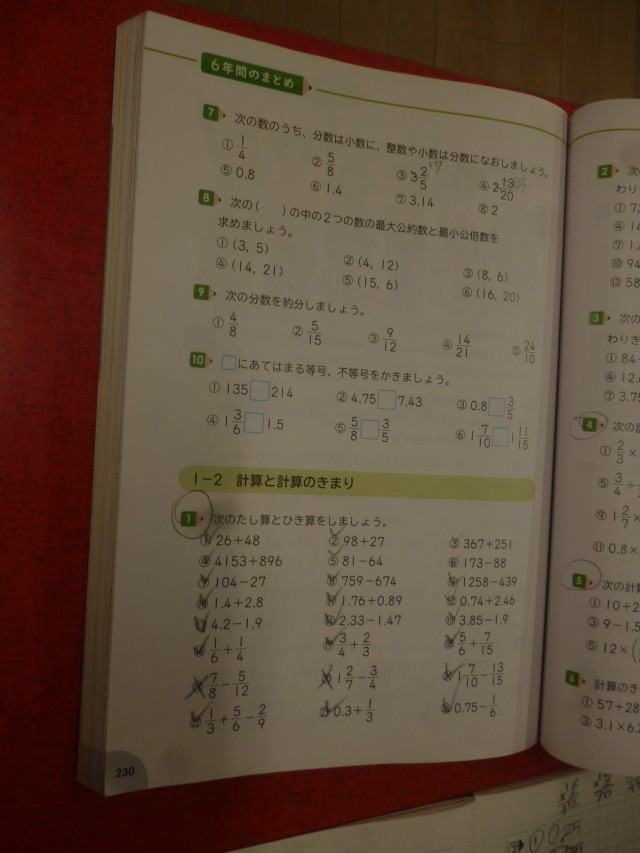 6年間のまとめ
7 次の数のうち、分数は小数に、整数や小数は分数になおしましょう。
① 1/4 ② 5/8 ③ 3 2/5 ④ 2 13/20
⑤ 0.8 ⑥ 1.4 ⑦ 3.14 ⑧ 2
8 次の( )の中の2つの数の最大公約数と最小公倍数を
求めましょう。
① (3, 5) ② (4, 12) ③ (8, 6)
④ (14, 21) ⑤ (15, 6) ⑥ (16, 20)
9 次の分数を約分しましょう。
① 4/8 ② 5/15 ③ 9/12 ④ 14/21 ⑤ 24/10
10 □にあてはまる等号、不等号をかきましょう。
① 135□214 ② 4.75□7.43 ③ 0.8□3/5
④ 1 3/6□1.5 ⑤ 5/8□3/5 ⑥ 1 7/10□1 11/15
1-2 計算と計算のきまり
1 次のたし算とひき算をしましょう。
① 26+48 ② 98+27 ③ 367+251
④ 4153+896 ⑤ 81-64 ⑥ 173-88
104-27 759-674 1258-439
1.4+2.8 1.76+0.89 0.74+2.46
4.2-1.9 2.33-1.47 3.85-1.9
1/6+1/4 3/4+2/3 5/6+7/15
7/8-5/12 1 2/7-3/4 1 7/10-13/15
1/3+5/6-2/9 0.3+1/3 0.75-1/6
230
2
わり
3
わりき
4 次の
① 2/3×
⑤ 3/4÷
⑨ 1 2/7×
⑪ 0.8×
5 次の計
① 10+2
③ 9-1.5
⑤ 12×(
6 計算のき
① 57+28
③ 3.1×6.2